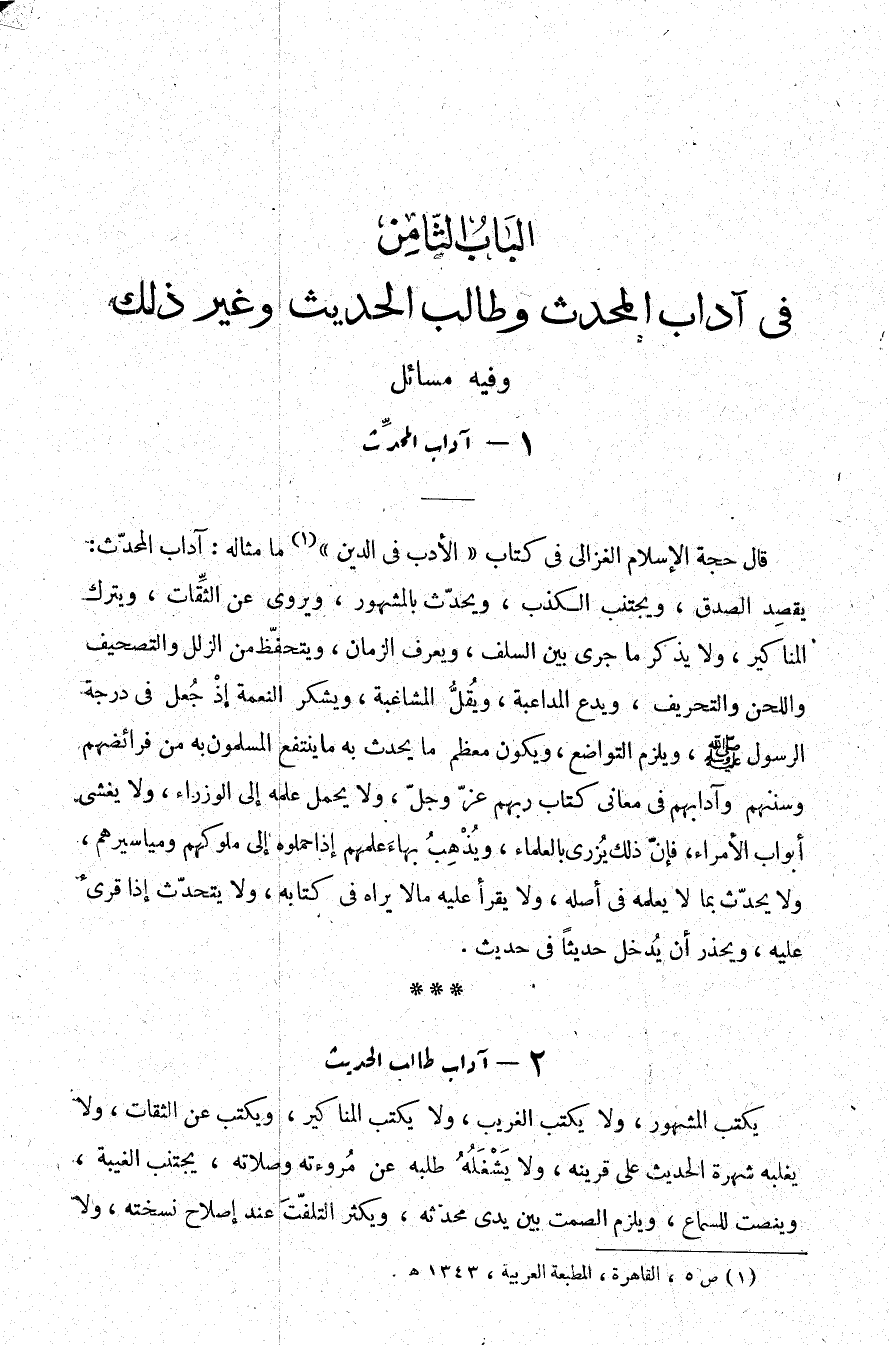 البَابُ الثَّامِنُ
فى آداب المحدث وطالب الحديث وغير ذلك
وفيه مسائل
١ – آداب المحدِّث
قال حجة الإسلام الغزالى فى كتاب « الأدب فى الدين »(١) ما مثاله : آداب المحدّث :
يقصد الصدق ، ويجتنب الكذب ، ويحدّث بالمشهور ، ويروى عن الثِّقات ، ويترك
المناكير ، ولا يذكر ما جرى بين السلف ، ويعرف الزمان ، ويتحفّظ من الزلل والتصحيف
واللحن والتحريف ، ويدع المداعبة ، ويُقلُّ المشاغبة ، ويشكر النعمة إذْ جُعل فى درجة
الرسول ﷺ ، ويلزم التواضع ، ويكون معظم ما يحدث به ماينتفع المسلمون به من فرائضهم
وسننهم وآدابهم فى معانى كتاب ربهم عزّ وجلّ ، ولا يحمل علمه إلى الوزراء ، ولا يغشى
أبواب الأمراء، فإنّ ذلك يُزرى بالعلماء ، ويُذْهِبُ بهاءَ علمهم إذا حملوه إلى ملوكهم ومياسيرهم ،
ولا يحدّث بما لا يعلمه فى أصله ، ولا يقرأ عليه مالا يراه فى كتابه ، ولا يتحدّث إذا قرىء
عليه ، ويحذر أن يُدخل حديثاً فى حديث .
***
٢ – آداب طالب الحديث
يكتب المشهور ، ولا يكتب الغريب ، ولا يكتب المناكير ، ويكتب عن الثقات ، ولا
يغلبه شهرة الحديث على قرينه ، ولا يَشْغَلُهُ طلبه عن مُروءته وصلاته ، يجتنب الغيبة ،
وينصت للسماع ، ويلزم الصمت بين يدى محدّثه ، ويكثر التلفّتَ عند إصلاح نسخته ، ولا
(١) ص ٥ ، القاهرة ، المطبعة العربية ، ١٣٤٣ ه .